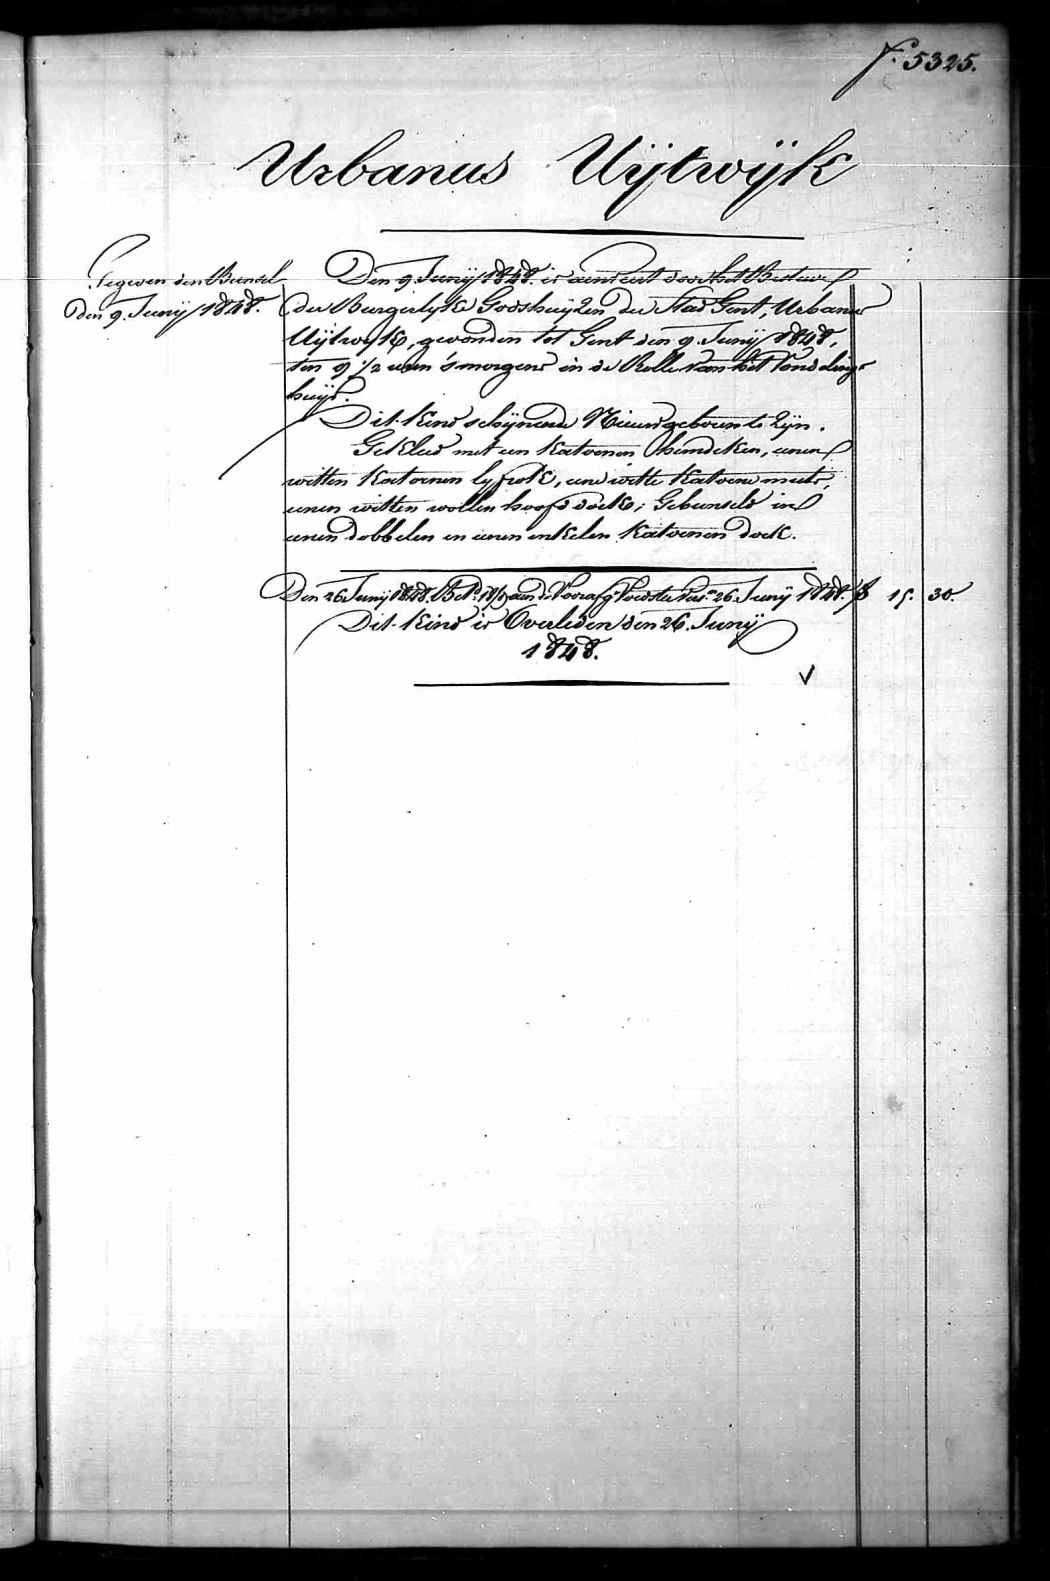 f.° 5325.
Urbanus Uijtwijk
Gegeven den Bunsel
den 9. Junij 1848.
Den 9. Junij 1848. is aenveert door het Bestuer
der Burgerlyke Godshuijzen der Stad Gent, Urbanus
Uijtwijk, gevonden tot Gent den 9. Junij 1848,
ten 9 1/2 uren 's morgens in de Rolle van het Vondelings
huijs.
Dit Kind schijnende Nieuwgeboren te Zijn.
Gekleed met een Katoenen hemdeken, eenen
witten Katoenen lyfrok, eene witte Katoene muts,
eenen witten wollen hoofd doek; Gebunseld in
eenen dobbelen en eenen enkelen Katoenen doek.
Den 26 Junij 1848. Bet. aen de Voorafg. Voedster 26. Junij 1848. f 15. 30.
Dit Kind is Overleden den 26. Junij
1848.